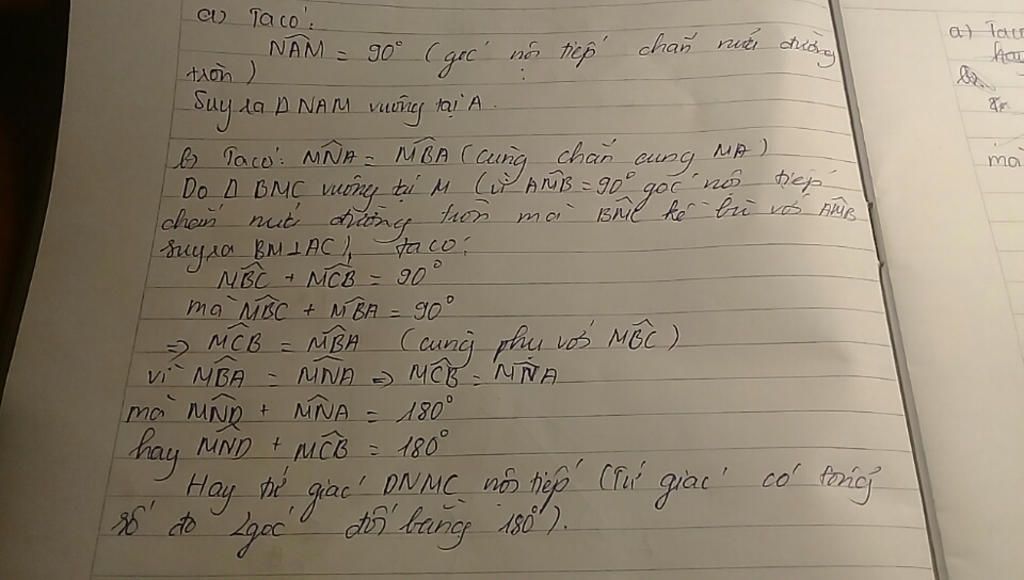 a) Ta có:
N̂AM = 90° (góc nội tiếp chắn nửa đường
tròn)
Suy ra Δ NAM vuông tại A.
b) Ta có: M̂NA = M̂BA (cùng chắn cung MA)
Do Δ BMC vuông tại M (vì ÂMB = 90° góc nội tiếp
chắn nửa đường tròn mà B̂MC kề bù với ÂMB
suy ra BM⊥AC), ta có:
M̂BC + M̂CB = 90°
mà M̂BC + M̂BA = 90°
=> M̂CB = M̂BA (cùng phụ với M̂BC)
vì M̂BA = M̂NA => M̂CB = M̂NA
mà M̂ND + M̂NA = 180°
hay M̂ND + M̂CB = 180°
Hay tứ giác DNMC nội tiếp (Tứ giác có tổng
số đo 2góc đối bằng 180°).
a) Ta có
mà